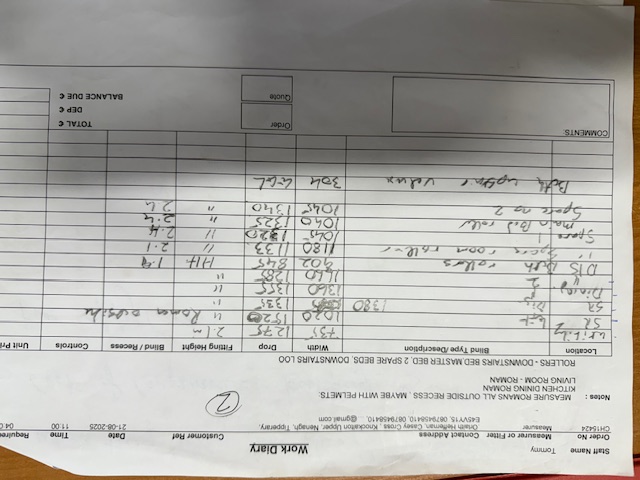 Work Diary
Staff Name Tommy
Order No Measurer or Fitter Contact Address Customer Ref Date Time Require
CH15424 Measurer Orlaith Heffernan, Casey Cross, Knockalton Upper, Nenagh, Tipperary, 21-08-2025 11:00 04-0
E45VY15, 0879458410, 0879458410, @gmail.com
Notes : MEASURE ROMANS ALL OUTSIDE RECESS , MAYBE WITH PELMETS.
KITCHEN DINING ROMAN
LIVING ROOM - ROMAN
ROLLERS - DOWNSTAIRS BED, MASTER BED, 2 SPARE BEDS, DOWNSTAIRS LOO
2
Location Blind Type/Description Width Drop Fitting Height Blind / Recess Controls Unit Pri
1275 2.1m
SR 1020 1520 " Roman outside
SR 1380 1335 "
Dining 1 1360 1355 "
" 2 1660 1285 "
D/S Bath rollers 902 845 H+H 1.9
" Spare room roller 1180 1133 " 2.1
Spare 1 1045 1320 " 2.4
main Bed roller 1040 1325 " 2.4
Spare no 2 1045 1340 " 2.4
Both upstairs velux 304
COMMENTS:
Order
Quote
TOTAL €
DEP €
BALANCE DUE €